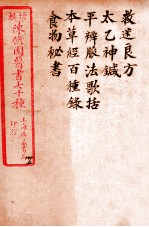 救迷良方
太乙神鍼
平辨脈法歌括
本草經百種錄
食物秘書
陳修園醫書七十種
上海
印行